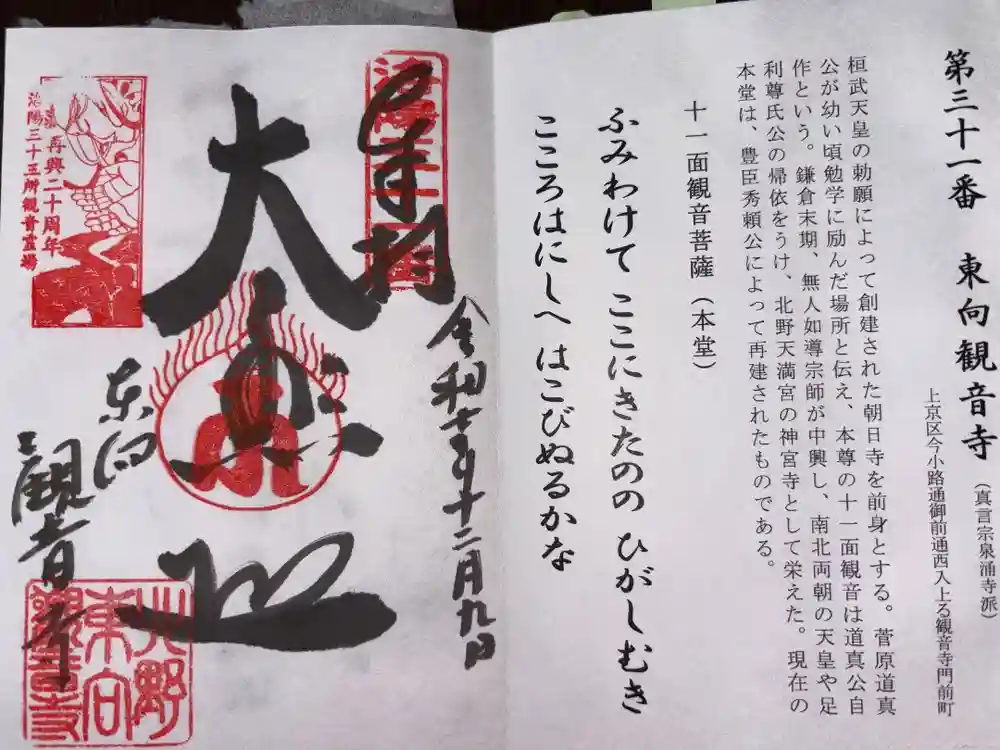 第三十一番 東向観音寺(真言宗泉涌寺派)
上京区今小路通御前通西入上る観音寺門前町
桓武天皇の勅願によって創建された朝日寺を前身とする。菅原道真
公が幼い頃勉学に励んだ場所と伝え、本尊の十一面観音は道真公自
作という。鎌倉末期、無人如導宗師が中興し、南北両朝の天皇や足
利尊氏公の帰依をうけ、北野天満宮の神宮寺として栄えた。現在の
本堂は、豊臣秀頼公によって再建されたものである。
十一面観音菩薩(本堂)
ふみわけて ここにきたのの ひがしむき
こころはにしへ はこびぬるかな
令和七年十二月九日
奉拝
大悲
東向
観音寺
再興二十周年
洛陽三十三所観音霊場
北野
東向
観音寺